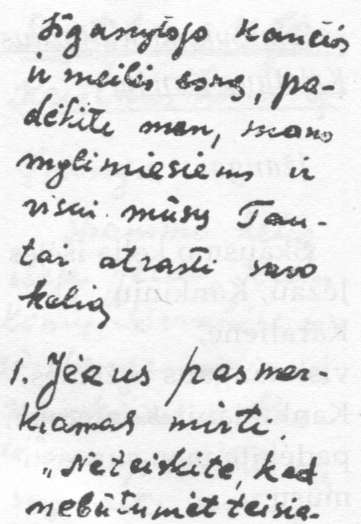 Išganytojo kančios
ir meilės pa-
dėkite man, mano
mylimiesiems ir
visai mūsų Tau-
tai atrasti savo
kelią
1. Jėzus pasmer-
kiamas mirti
„Neteiskite, kad
nebūtumėt teisia-